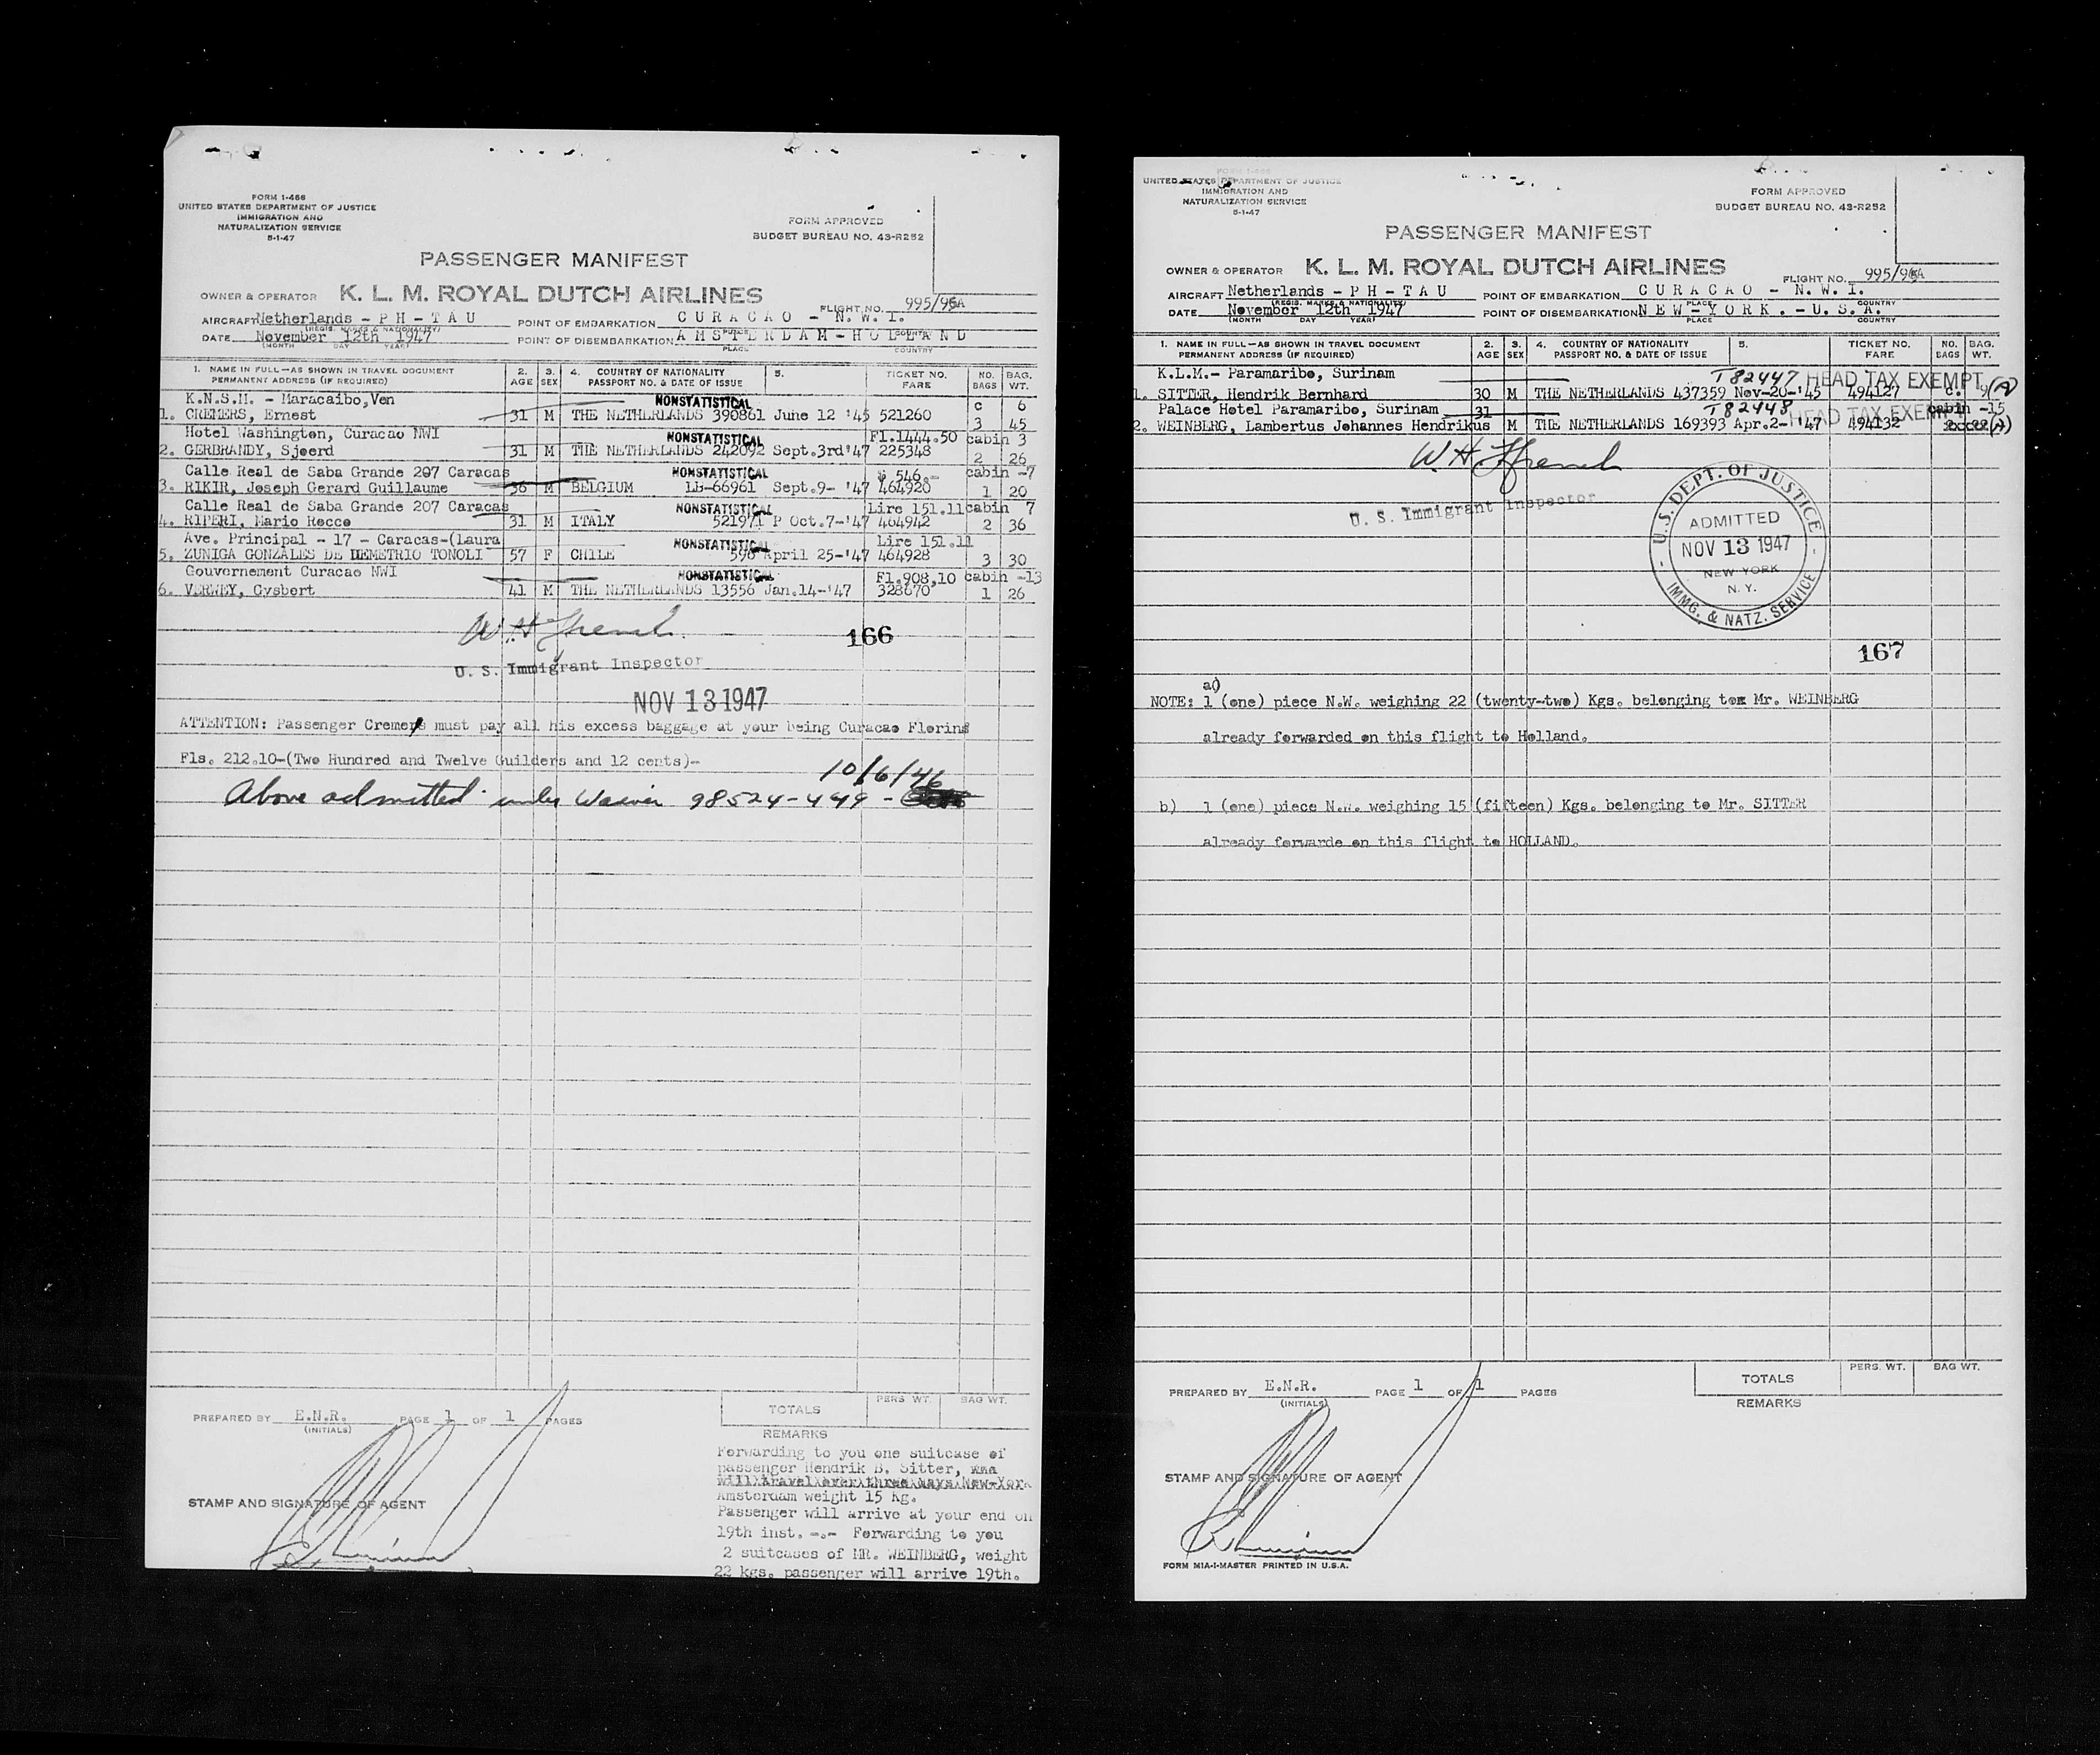 FORM I-466
UNITED STATES DEPARTMENT OF JUSTICE
IMMIGRATION AND
NATURALIZATION SERVICE
5-1-47
FORM APPROVED
BUDGET BUREAU NO. 43-R252
PASSENGER MANIFEST
OWNER & OPERATOR K. L. M. ROYAL DUTCH AIRLINES FLIGHT NO. 995/
AIRCRAFT Netherlands - P H - T A U POINT OF EMBARKATION C U R A C A O - N. W. I.
(REGIS. MARKS & NATIONALITY)
DATE November 12th 1947 POINT OF DISEMBARKATION A M S T E R D A M - H O L L A N D
(MONTH DAY YEAR) PLACE COUNTRY
1. NAME IN FULL—AS SHOWN IN TRAVEL DOCUMENT 2. 3. 4. COUNTRY OF NATIONALITY 5. TICKET NO. NO. BAG.
PERMANENT ADDRESS (IF REQUIRED) AGE SEX PASSPORT NO. & DATE OF ISSUE FARE BAGS WT.
K.N.S.M. - Maracaibo,Ven NONSTATISTICAL c 6
1. CREMERS, Ernest 31 M THE NETHERLANDS 390861 June 12 '45 521260 3 45
Hotel Washington, Curacao NWI NONSTATISTICAL Fl.1444.50 cabin 3
2. GERBRANDY, Sjoerd 31 M THE NETHERLANDS 242092 Sept.3rd'47 225348 2 26
Calle Real de Saba Grande 207 Caracas NONSTATISTICAL $ 546.- cabin -7
3. RIKIR, Joseph Gerard Guillaume 36 M BELGIUM LB-66961 Sept.9- '47 464920 1 20
Calle Real de Saba Grande 207 Caracas NONSTATISTICAL Lire 151.11 cabin 7
4. RIPERI, Mario Rocco 31 M ITALY 521971 P Oct.7-'47 464942 2 36
Ave. Principal - 17 - Caracas-(Laura NONSTATISTICAL Lire 151.11
5. ZUNIGA GONZALES DE DEMETRIO TONOLI 57 F CHILE 596 April 25-'47 464928 3 30
Gouvernement Curacao NWI NONSTATISTICAL Fl.908,10 cabin -13
6. VERWEY, Gysbert 41 M THE NETHERLANDS 13556 Jan.14-'47 328670 1 26
W H French
166
U. S. Immigrant Inspector
NOV 13 1947
ATTENTION: Passenger Cremers must pay all his excess baggage at your being Curacao Florins
Fls. 212.10-(Two Hundred and Twelve Guilders and 12 cents)-
10/6/46
Above admitted under Waiver 98524-449 -
PREPARED BY E.N.R. PAGE 1 OF 1 PAGES
(INITIALS)
TOTALS PERS. WT. BAG WT.
REMARKS
Forwarding to you one suitcase of
passenger Hendrik B. Sitter, who
will travel over three days New-York
Amsterdam weight 15 kg.
Passenger will arrive at your end on
19th inst. -.- Forwarding to you
2 suitcases of MR. WEINBERG, weight
22 kgs. passenger will arrive 19th.
STAMP AND SIGNATURE OF AGENT
FORM I-466
UNITED STATES DEPARTMENT OF JUSTICE
IMMIGRATION AND
NATURALIZATION SERVICE
5-1-47
FORM APPROVED
BUDGET BUREAU NO. 43-R252
PASSENGER MANIFEST
OWNER & OPERATOR K. L. M. ROYAL DUTCH AIRLINES FLIGHT NO. 995/
AIRCRAFT Netherlands - P H - T A U POINT OF EMBARKATION C U R A C A O - N. W. I.
(REGIS. MARKS & NATIONALITY) PLACE COUNTRY
DATE November 12th 1947 POINT OF DISEMBARKATION N E W - Y O R K . - U. S. A.
(MONTH DAY YEAR) PLACE COUNTRY
1. NAME IN FULL—AS SHOWN IN TRAVEL DOCUMENT 2. 3. 4. COUNTRY OF NATIONALITY 5. TICKET NO. NO. BAG.
PERMANENT ADDRESS (IF REQUIRED) AGE SEX PASSPORT NO. & DATE OF ISSUE FARE BAGS WT.
K.L.M.- Paramaribo, Surinam T82447 HEAD TAX EXEMPT
1. SITTER, Hendrik Bernhard 30 M THE NETHERLANDS 437359 Nov-20-'45 494127 c. 9(A)
Palace Hotel Paramaribo, Surinam 31 T82448 HEAD TAX EXEMPT cabin -15
2. WEINBERG, Lambertus Johannes Hendrikus M THE NETHERLANDS 169393 Apr.2-'47 494132 (A)
W H French
U. S. Immigrant Inspector
U.S. DEPT. OF JUSTICE
ADMITTED
NOV 13 1947
NEW YORK
N. Y.
IMMG. & NATZ. SERVICE
167
NOTE: a) 1 (one) piece N.W. weighing 22 (twenty-two) Kgs. belonging tox Mr. WEINBERG
already forwarded on this flight to Holland.
b) 1 (one) piece N.W. weighing 15 (fifteen) Kgs. belonging to Mr. SITTER
already forwarde on this flight to HOLLAND.
PREPARED BY E.N.R. PAGE 1 OF 1 PAGES
(INITIALS)
TOTALS PERS. WT. BAG WT.
REMARKS
STAMP AND SIGNATURE OF AGENT
FORM MIA-I-MASTER PRINTED IN U.S.A.